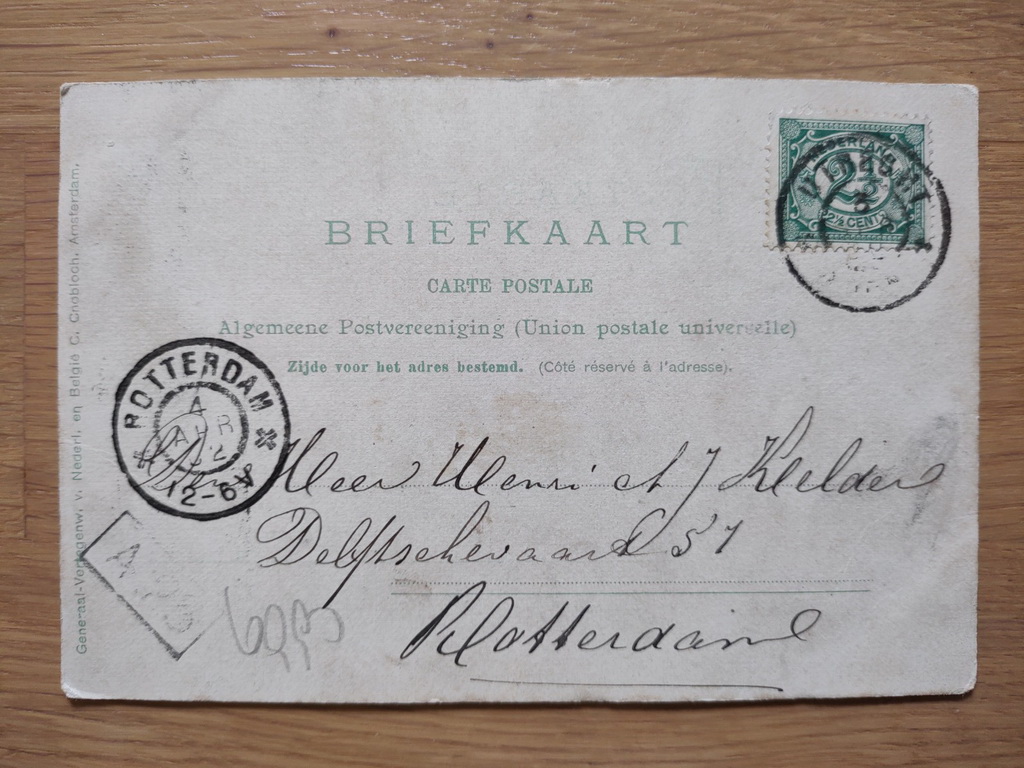 BRIEFKAART
CARTE POSTALE
Algemeene Postvereeniging (Union postale universelle)
Zijde voor het adres bestemd. (Côté réservé à l'adresse).
NEDERLAND
2½
2½ CENT
ROTTERDAM
4
APR
12-6V
Den Heer Henri A J Kelder
Delftschevaart 51
Rotterdam
A
Generaal-Vertegenw. v. Nederl. en België C. Cnobloch, Amsterdam.